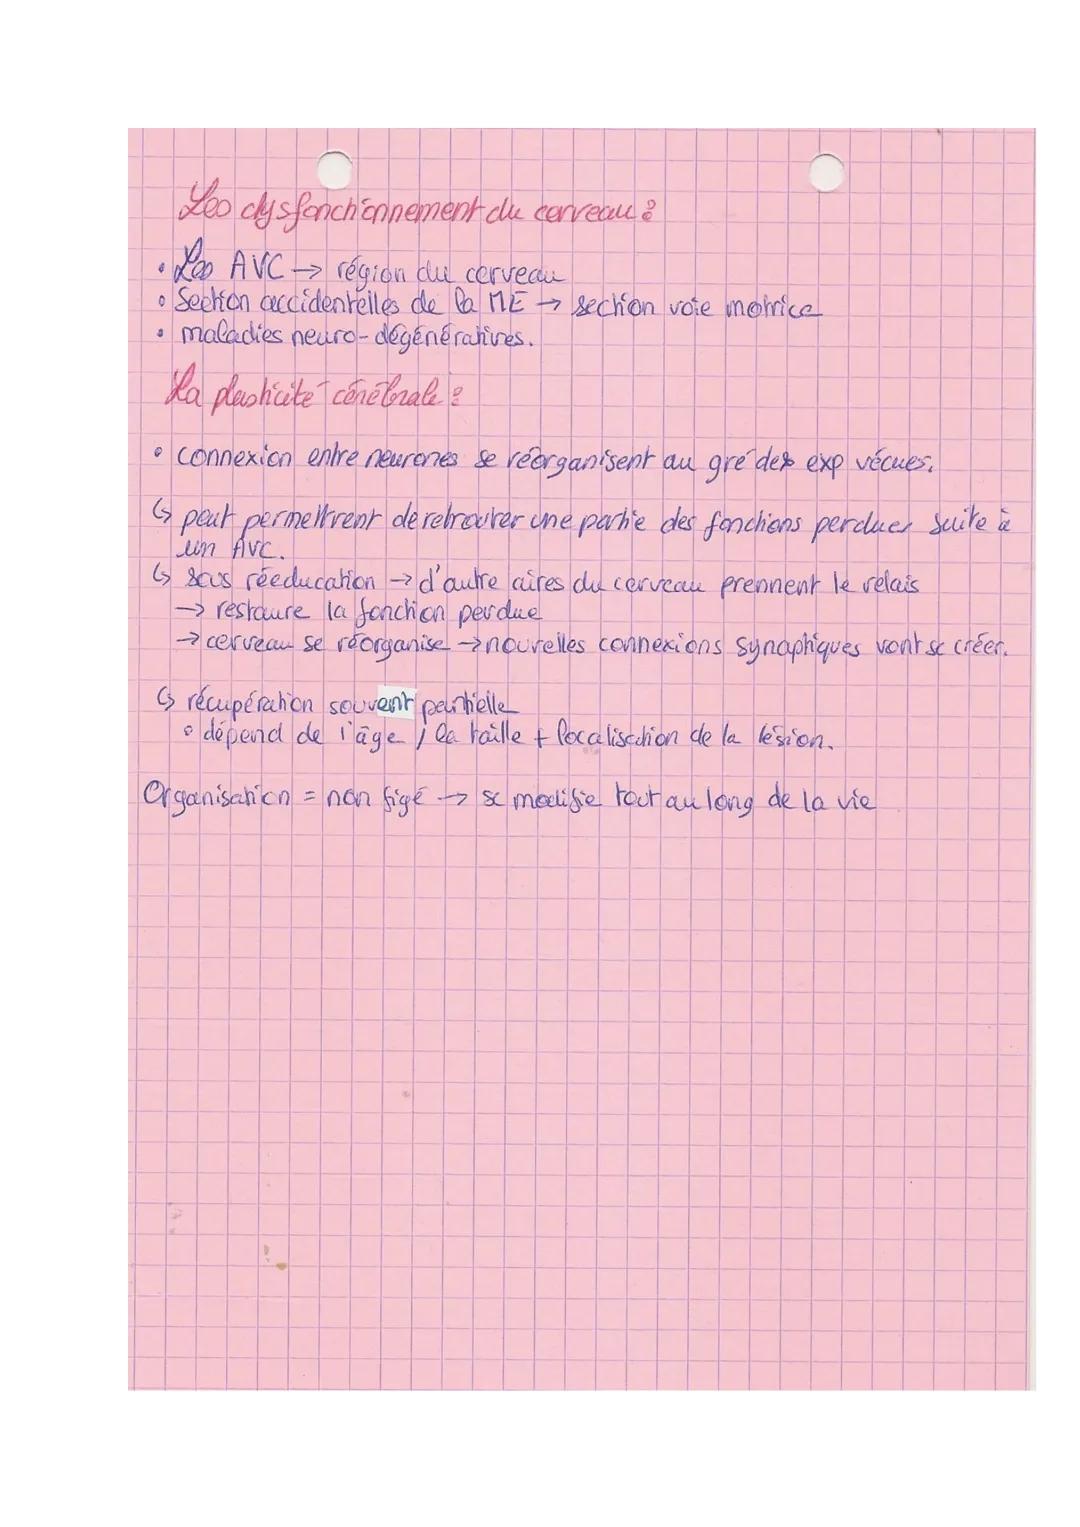 Les dysfonctionnement du cerveau :
• Les AVC → région du cerveau
• Section accidentelles de la ME → section voie motrice
• maladies neuro-dégénératives.
La plasticité cérébrale :
• connexion entre neurones se réorganisent au gré des exp vécues.
↳ peut permettrent de retrouver une partie des fonctions perdues suite à
un AVC.
↳ sous rééducation → d'autre aires du cerveau prennent le relais
→ restaure la fonction perdue
→ cerveau se réorganise → nouvelles connexions synaptiques vont se créer.
↳ récupération souvent partielle
• dépend de l'âge / la taille + localisation de la lésion.
Organisation = non figé → se modifie tout au long de la vie